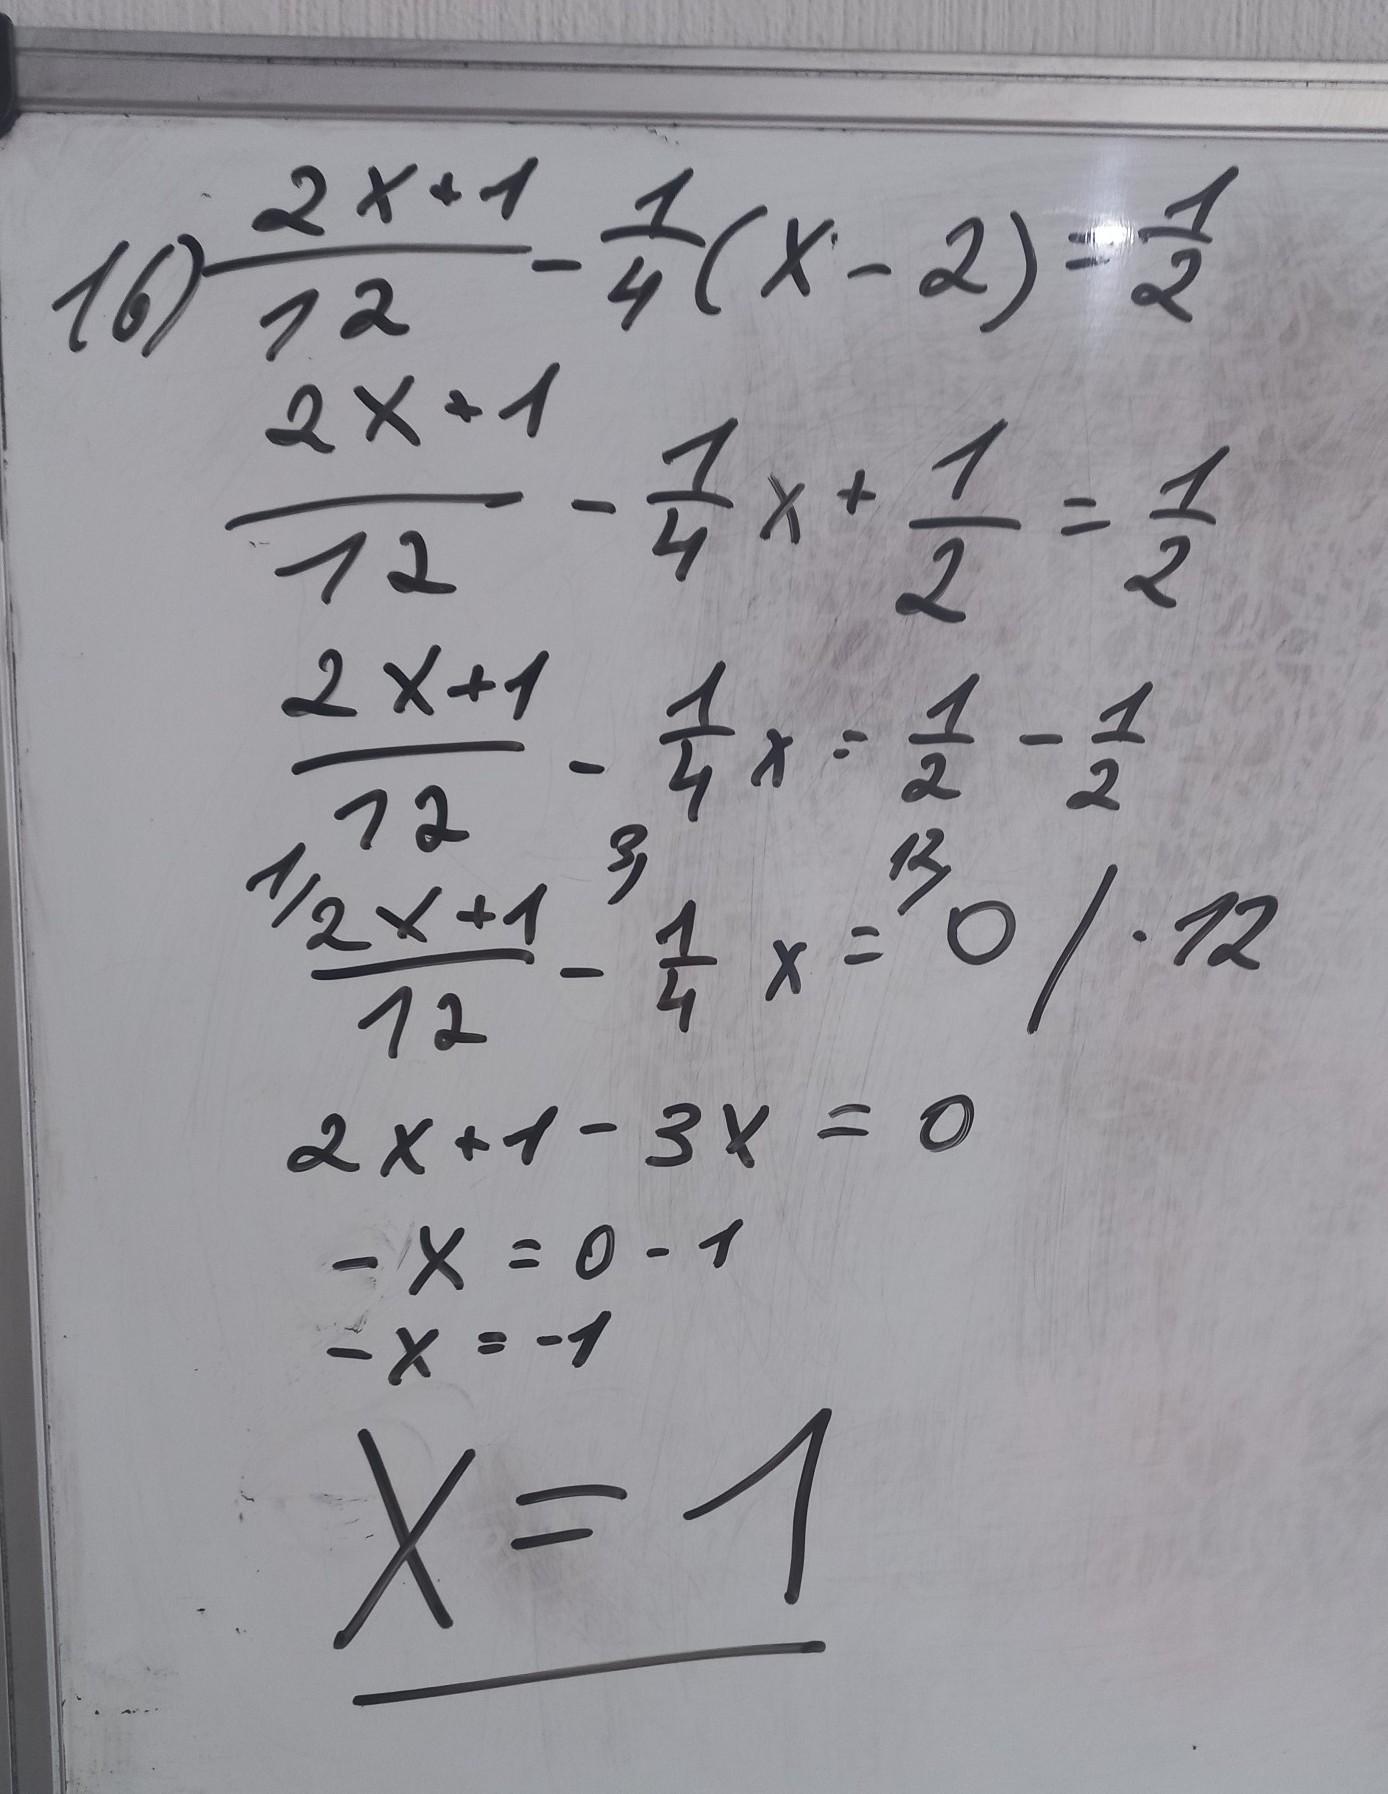 16) (2x+1)/12 - 1/4(x-2) = 1/2
(2x+1)/12 - 1/4 x + 1/2 = 1/2
(2x+1)/12 - 1/4 x = 1/2 - 1/2
1/ 3/ 12/
(2x+1)/12 - 1/4 x = 0 / · 12
2x+1-3x = 0
-x = 0-1
-x = -1
X = 1